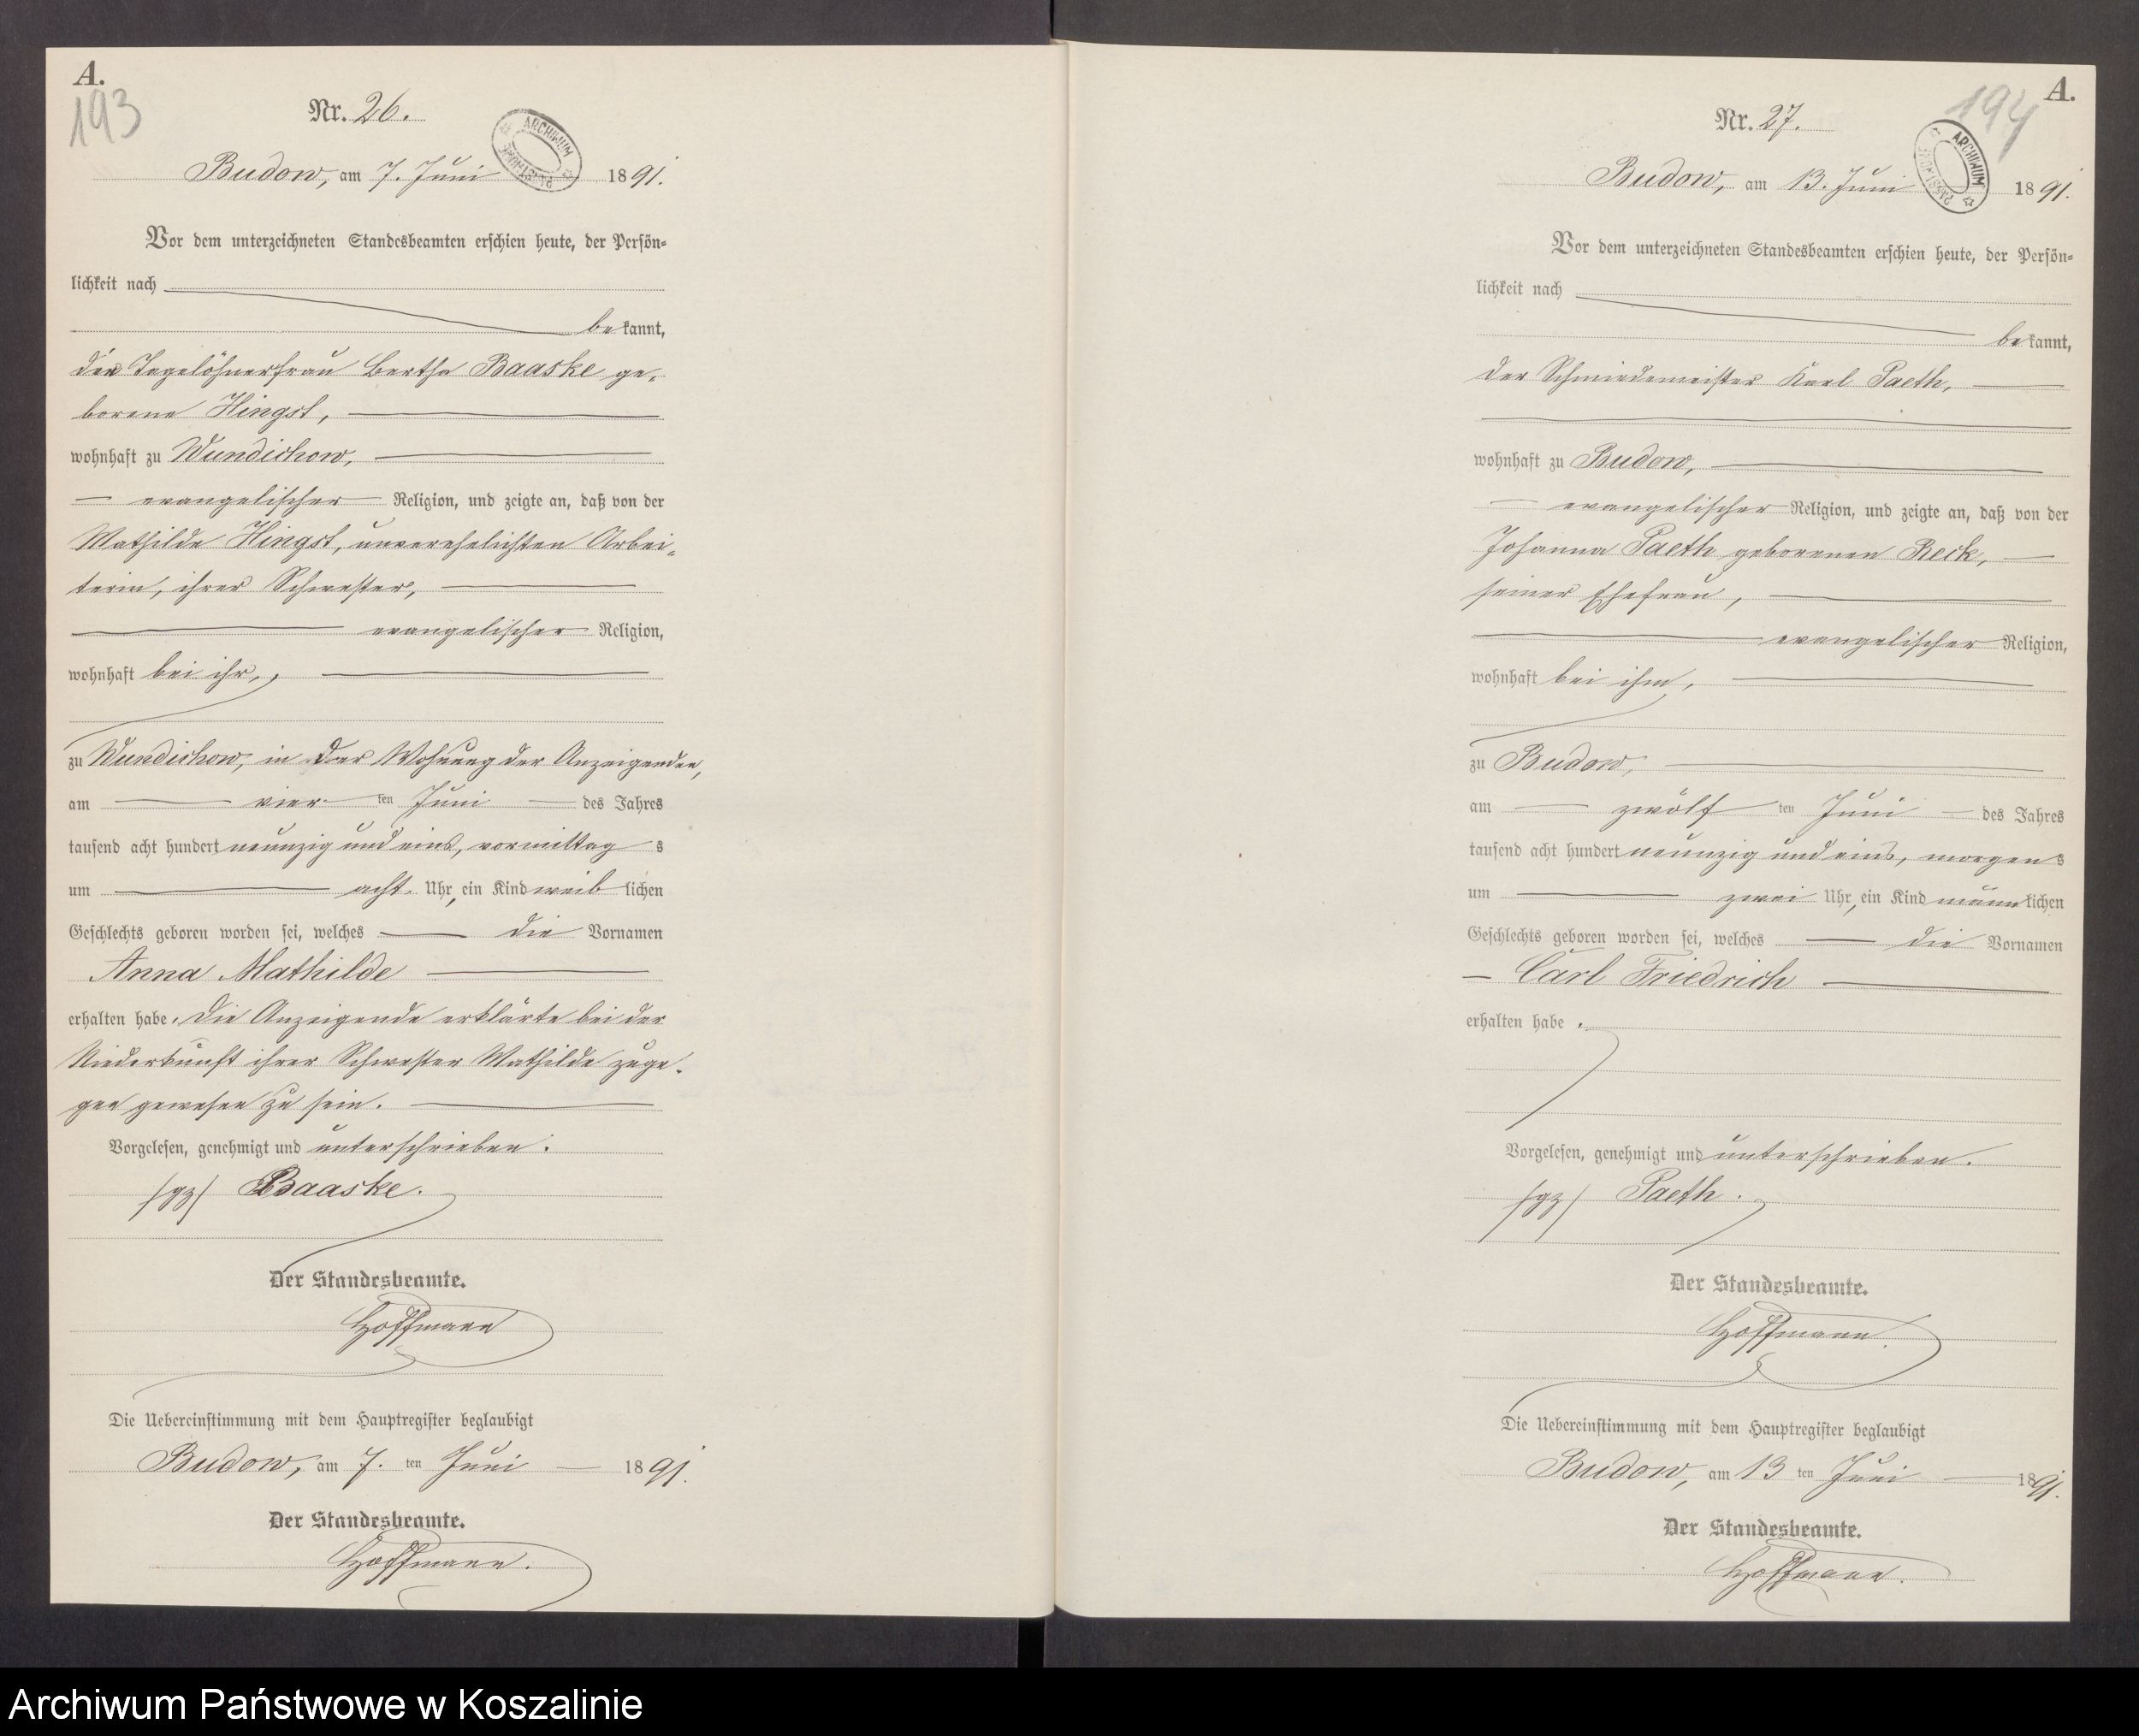 A.
193
Nr. 26.
ARCHIWUM PAŃSTWOWE
Budow, am 7. Juni 1891.
Vor dem unterzeichneten Standesbeamten erschien heute, der Persön-
lichkeit nach
bekannt,
die Tagelöhnerfrau Bertha Baaske ge-
borene Hingst,
wohnhaft zu Wundichow,
evangelischer Religion, und zeigte an, daß von der
Mathilde Hingst, unverehelichten Arbei-
terin, ihrer Schwester,
evangelischer Religion,
wohnhaft bei ihr,
zu Wundichow, in der Wohnung der Anzeigenden,
am vier ten Juni des Jahres
tausend acht hundert neunzig und eins, vormittag s
um acht Uhr, ein Kind weib lichen
Geschlechts geboren worden sei, welches die Vornamen
Anna Mathilde
erhalten habe. Die Anzeigende erklärte bei der
Niederkunft ihrer Schwester Mathilde zuge-
gen gewesen zu sein.
Vorgelesen, genehmigt und unterschrieben.
/gz/ Baaske.
Der Standesbeamte.
Hoffmann
Die Uebereinstimmung mit dem Hauptregister beglaubigt
Budow, am 7. ten Juni 1891.
Der Standesbeamte.
Hoffmann.
A.
194
Nr. 27.
ARCHIWUM PAŃSTWOWE
Budow, am 13. Juni 1891.
Vor dem unterzeichneten Standesbeamten erschien heute, der Persön-
lichkeit nach
bekannt,
der Schmiedemeister Karl Paeth,
wohnhaft zu Budow,
evangelischer Religion, und zeigte an, daß von der
Johanna Paeth geborenen Reck,
seiner Ehefrau,
evangelischer Religion,
wohnhaft bei ihm,
zu Budow,
am zwölf ten Juni des Jahres
tausend acht hundert neunzig und eins, morgen s
um zwei Uhr, ein Kind männ lichen
Geschlechts geboren worden sei, welches die Vornamen
Carl Friedrich
erhalten habe.
Vorgelesen, genehmigt und unterschrieben.
/gz/ Paeth.
Der Standesbeamte.
Hoffmann.
Die Uebereinstimmung mit dem Hauptregister beglaubigt
Budow, am 13 ten Juni 1891.
Der Standesbeamte.
Hoffmann.
Archiwum Państwowe w Koszalinie